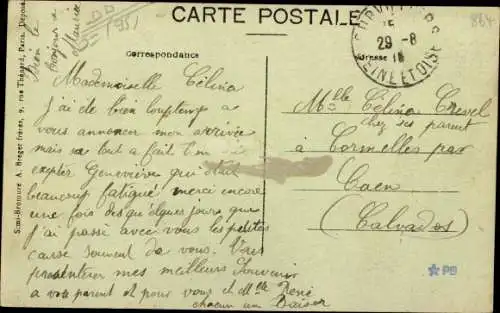 CARTE POSTALE
Correspondance
Adresse
29 - 8
SEINE ET OISE
Semi-Bromure A. Breger frères, 9, rue Thénard, Paris. Déposé
Bien le
Bonjour a
Maurice
Mademoiselle Célina
J'ai de bien longtemps a
vous annoncer mon arrivée
mais tout a fait
expter Geneviève qui était
beaucoup fatigué merci encore
une fois des quelques jours que
J'ai passé avec vous les petites
cause souvent de vous. Vous
présenterer mes meilleurs Souvenir
a votre parent et pour vous et Mlle René
chacun un Baiser
Mlle Célina Crevel
chez ses parent
à Cormelles par
Caen
(Calvados)
PB